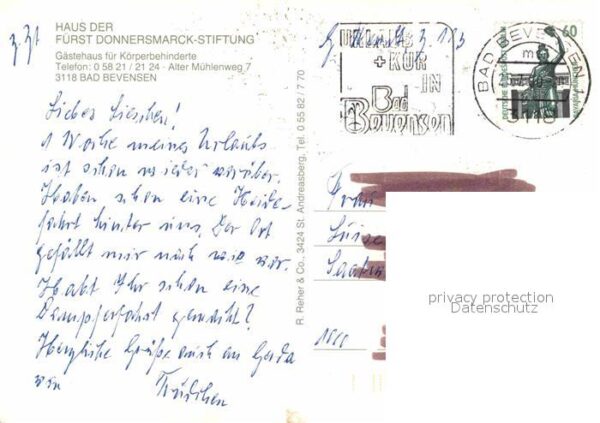 z. Zt
HAUS DER
FÜRST DONNERSMARCK-STIFTUNG
Gästehaus für Körperbehinderte
Telefon: 0 58 21 / 21 24 - Alter Mühlenweg 7
3118 BAD BEVENSEN
Liebes Lieschen!
1 Woche meines Urlaubs
ist schon wieder vorüber.
Haben schon eine Heide-
fahrt hinter uns. Der Ort
gefällt mir nach wie vor.
Habt Ihr schon eine
Dampferfahrt gemacht?
Herzliche Grüße auch an Gerda
von Trudchen
R. Reher & Co., 3424 St. Andreasberg, Tel. 0 55 82 / 7 70
URLAUB
+ KUR
IN
Bad
Bevensen
BAD BEVENSEN
3118
60
Frau
Luise
1000
privacy protection
Datenschutz